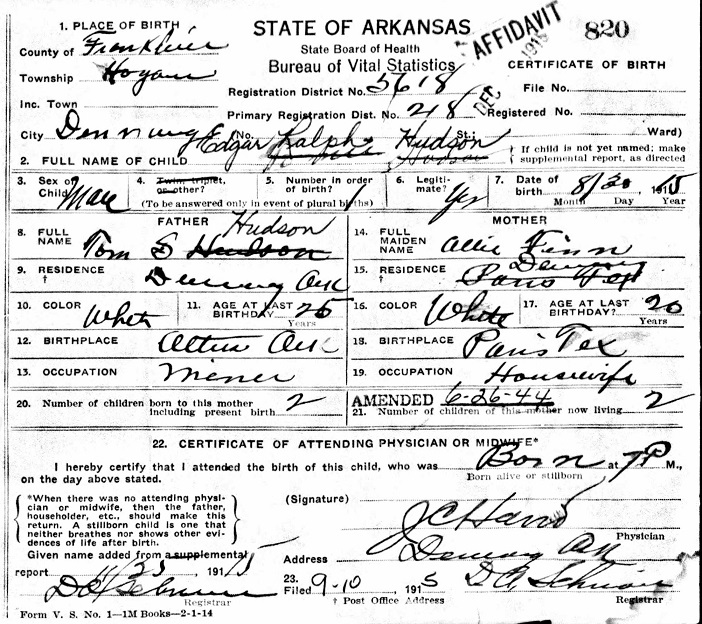 1. PLACE OF BIRTH
County of Franklin
Township Hogan
Inc. Town
City Denning (No. St.; Ward)
STATE OF ARKANSAS
State Board of Health
Bureau of Vital Statistics
Registration District No. 5618
Primary Registration Dist. No. 218
AFFIDAVIT
DEC 1915
820
CERTIFICATE OF BIRTH
File No.
Registered No.
2. FULL NAME OF CHILD Edgar Ralph Hudson
† If child is not yet named; make supplemental report, as directed
3. Sex of Child Male
4. Twin, triplet, or other?
5. Number in order of birth?
(To be answered only in event of plural births)
6. Legitimate? Yes
7. Date of birth 8/30 1915
Month Day Year
FATHER
8. FULL NAME Tom Hudson
9. RESIDENCE † Denning Ark
10. COLOR White
11. AGE AT LAST BIRTHDAY 25
Years
12. BIRTHPLACE Ark
13. OCCUPATION Miner
MOTHER
14. FULL MAIDEN NAME Allie Finn
15. RESIDENCE † Denning Paris Tex
16. COLOR White
17. AGE AT LAST BIRTHDAY? 20
Years
18. BIRTHPLACE Paris Tex
19. OCCUPATION Housewife
20. Number of children born to this mother including present birth 2
AMENDED 6-26-44
21. Number of children of this mother now living 2
22. CERTIFICATE OF ATTENDING PHYSICIAN OR MIDWIFE*
I hereby certify that I attended the birth of this child, who was Born at 7 P M.,
Born alive or stillborn
on the day above stated.
*When there was no attending physician or midwife, then the father, householder, etc., should make this return. A stillborn child is one that neither breathes nor shows other evidences of life after birth.
(Signature) J C
Physician
Given name added from a supplemental
report 11/25 1915
Registrar
Address Denning Ark
23. Filed 9-10 1915
† Post Office Address
Registrar
Form V. S. No. 1—1M Books—2-1-14